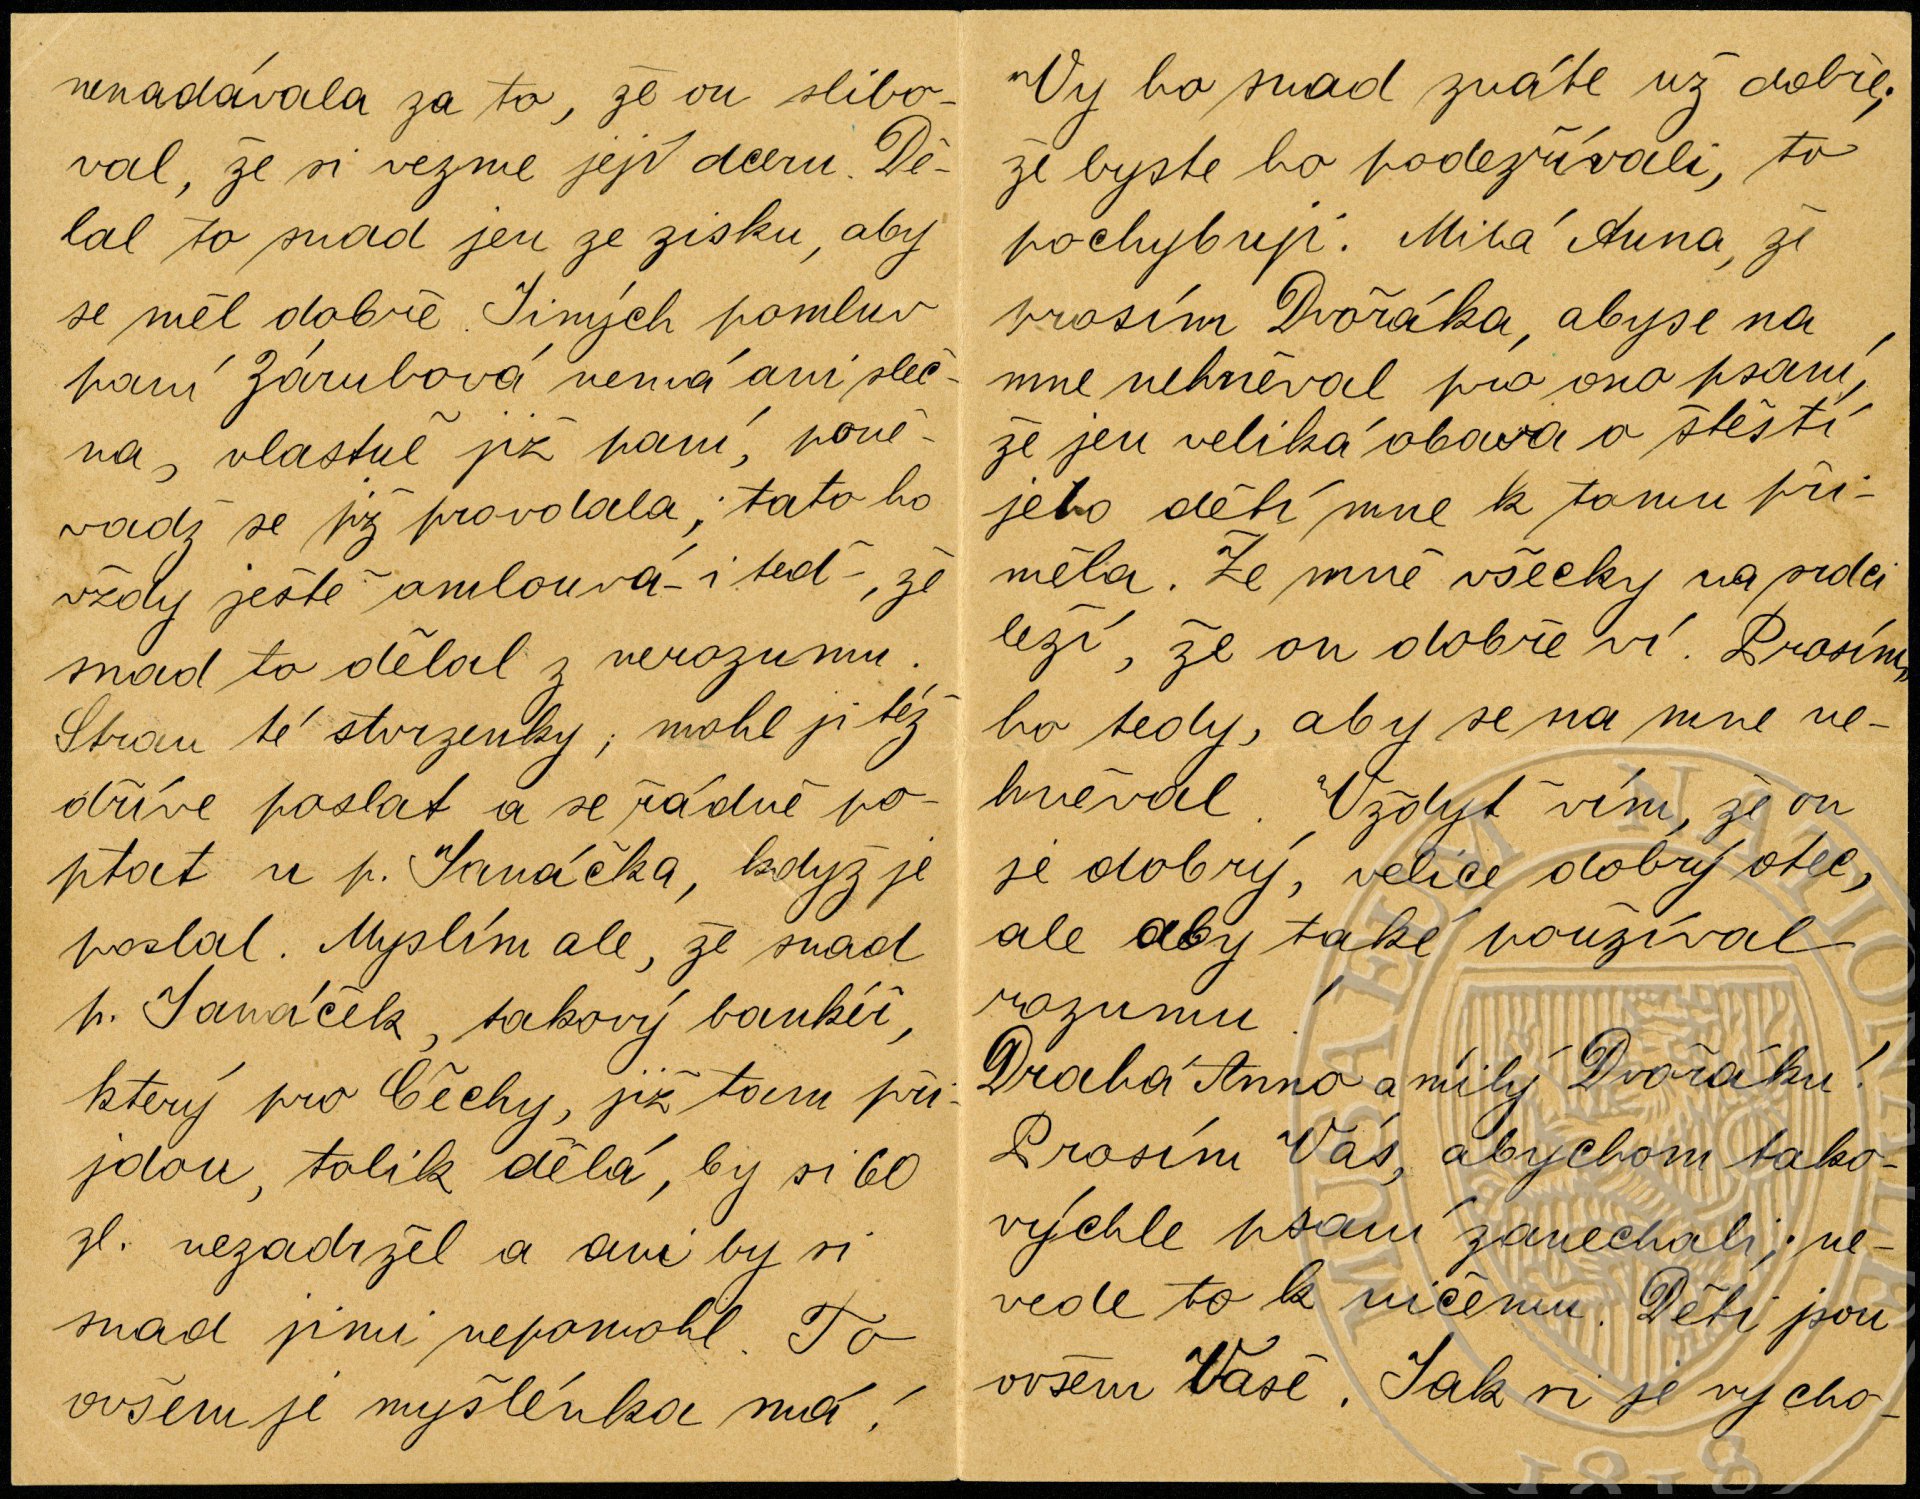 nenadávala za to, že on slibo-
val, že si vezme její dceru. Dě-
lal to snad jen ze zisku, aby
se měl dobře. Jiných pomluv
paní Zárubová nemá ani sleč-
na, vlastně již paní, poně-
vadž se již provdala; tato ho
vždy ještě omlouvá - i teď -, že
snad to dělal z nerozumu.
Stran té stvrzenky, mohl ji též
dříve poslat a se řádně po-
ptat u p. Janáčka, když je
poslal. Myslím ale, že snad
p. Janáček, takový bankéř,
který pro Čechy, již tam při-
jdou, tolik dělá, by si 60
zl. nezadržel a ani by si
snad jimi nepomohl. To
ovšem je myšlénka má!
Vy ho snad znáte už dobře;
že byste ho podezřívali, to
pochybuji. Milá Anna, že
prosím Dvořáka, aby se na
mne nehněval pro ono psaní,
že jen veliká obava o štěstí
jeho dětí mne k tomu při-
měla. Že mně všecky na srdci
leží, že on dobře ví. Prosím
ho tedy, aby se na mne ne-
hněval. Vždyť vím, že on
je dobrý, velice dobrý otec,
ale aby také používal
rozumu!
Drahá Anno a milý Dvořáku!
Prosím Vás, abychom tako-
výchle psaní zanechali; ne-
vede to k ničemu. Děti jsou
ovšem Vaše. Jak si je vycho-
MUSAEUM NATIONALE
1818